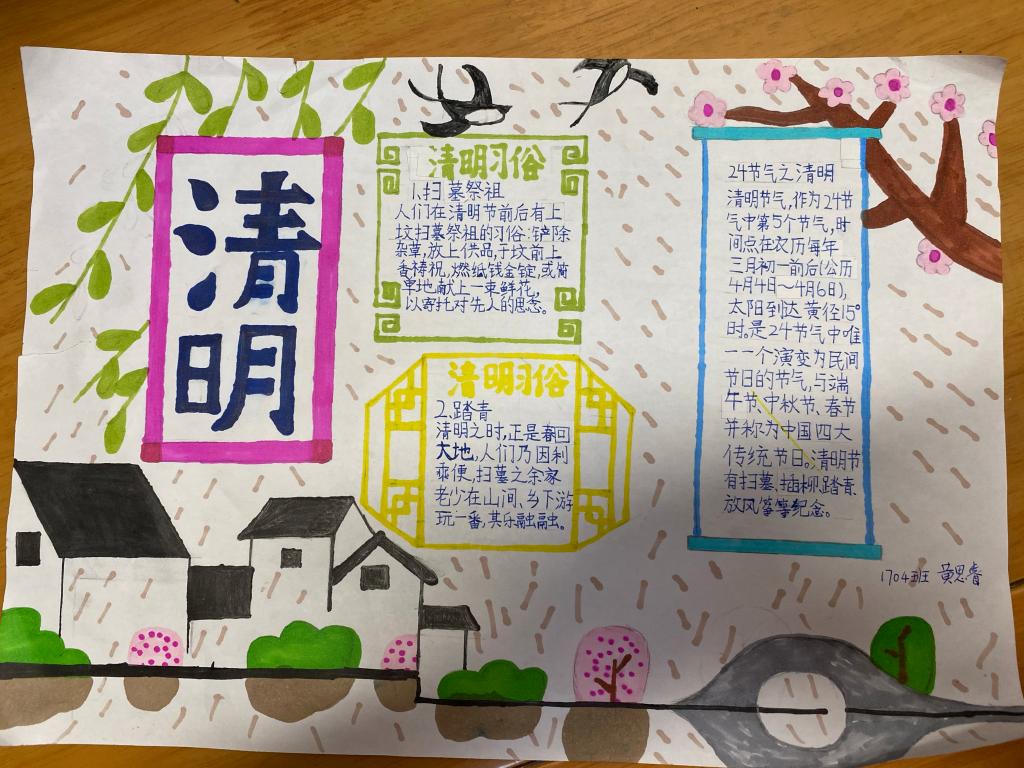 清明
清明习俗
1.扫墓祭祖
人们在清明节前后有上
坟扫墓祭祖的习俗:铲除
杂草,放上供品,于坟前上
香祷祝,燃纸钱金锭,或简
单地献上一束鲜花,
以寄托对先人的思念。
清明习俗
2.踏青
清明之时,正是春回
大地,人们乃因利
乘便,扫墓之余家
老少在山间、乡下游
玩一番,其乐融融。
24节气之清明
清明节气,作为24节
气中第5个节气,时
间点在农历每年
三月初一前后(公历
4月4日~4月6日),
太阳到达黄径15°
时。是24节气中唯
一一个演变为民间
节日的节气,与端
午节、中秋节、春节
并称为中国四大
传统节日。清明节
有扫墓、插柳、踏青、
放风筝等纪念。
1704班 黄思睿